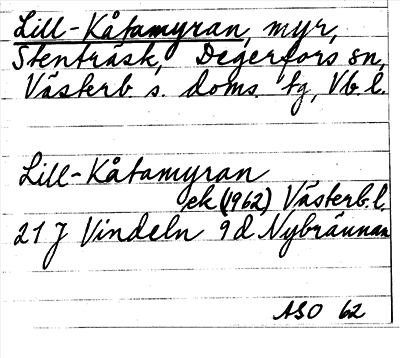 Lill-Kåtamyran, myr,
Stenträsk, Degerfors sn,
Västerb. s. doms. tg, Vb. l.
Lill-Kåtamyran
ek (1962) Västerb. l.
21 J Vindeln 9d Nybrännan
ASO 62